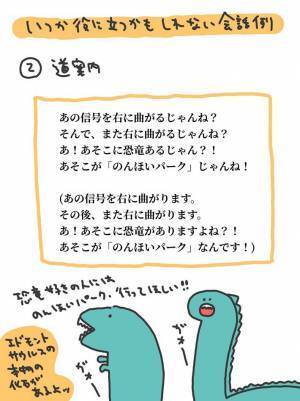 いつか役に立つかもしれない会話例
② 道案内
あの信号を右に曲がるじゃんね？
そんで、また右に曲がるじゃんね？
あ！あそこに恐竜あるじゃん？！
あそこが「のんほいパーク」じゃんね！
(あの信号を右に曲がります。
その後、また右に曲がります。
あ！あそこに恐竜がありますよね？！
あそこが「のんほいパーク」なんです！)
恐竜好きの人には
のんほいパーク、行ってほしい!!
エドモント
サウルスの
本物の
化石が
あるよッ
がおー
がおー